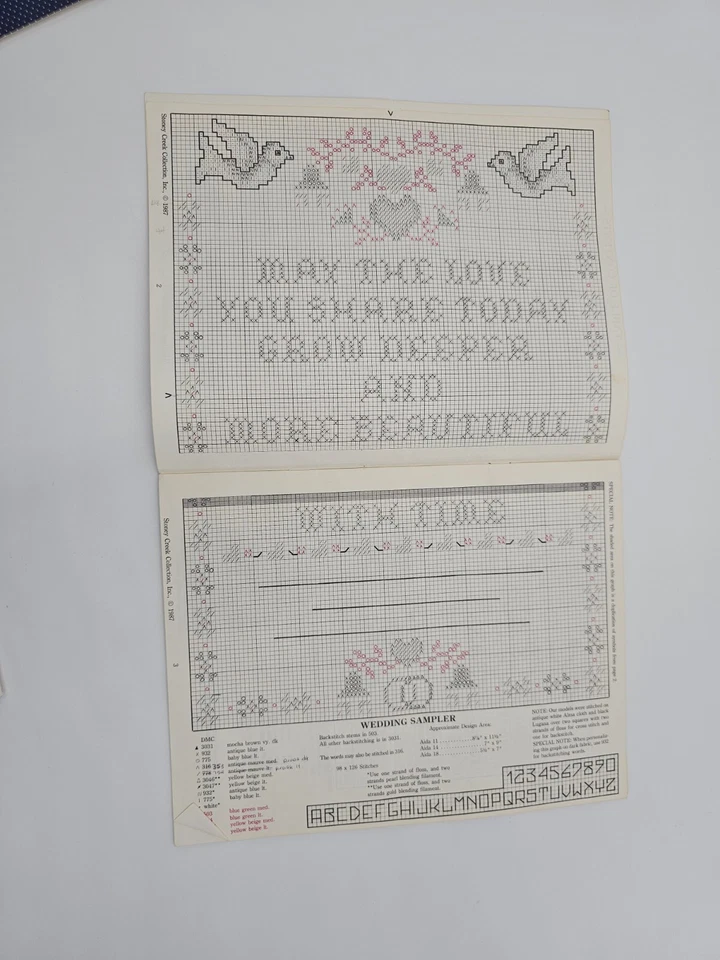 Stoney Creek Collection, Inc., © 1987
2
MAY THE LOVE
YOU SHARE TODAY
GROW DEEPER
AND
MORE BEAUTIFUL
WITH TIME
Stoney Creek Collection, Inc., © 1987
3
SPECIAL NOTE: The shaded area on this graph is a duplication of symbols from page 2.
WEDDING SAMPLER
DMC
3031 mocha brown vy. dk
932 antique blue lt.
775 baby blue lt.
316 antique mauve med.
778 antique mauve lt.
3046** yellow beige med.
3047** yellow beige lt.
932* antique blue lt.
775* baby blue lt.
white*
blue green med.
blue green lt.
yellow beige med.
yellow beige lt.
Backstitch stems in 503.
All other backstitching is in 3031.
The words may also be stitched in 316.
98 x 126 Stitches
Approximate Design Area:
Aida 11
Aida 14 7" x 9"
Aida 18
*Use one strand of floss, and two
strands pearl blending filament.
**Use one strand of floss, and two
strands gold blending filament.
NOTE: Our models were stitched on
antique white Alma cloth and black
Lugana over two squares with two
strands of floss for cross stitch and
one for backstitch.
SPECIAL NOTE: When personaliz-
ing this graph on dark fabric, use 932
for backstitching words.
1234567890
ABCDEFGHIJKLMNOPQRSTUVWXYZ